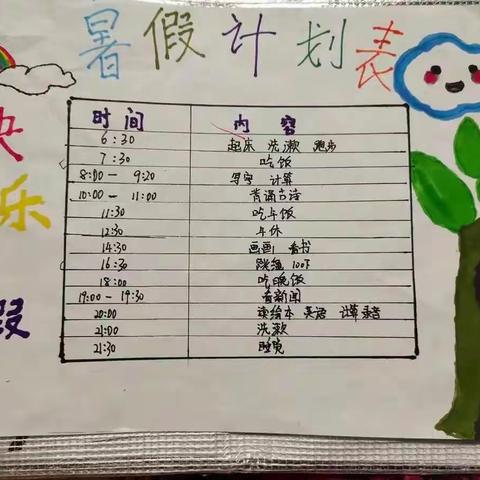 暑假计划表
快
乐
假
时间 内容
6:30 起床 洗漱 跑步
7:30 吃饭
8:00— 9:20 写字 计算
10:00 — 11:00 背诵古诗
11:30 吃午饭
12:30 午休
14:30 画画 看书
16:30 跳绳 100下
18:00 吃晚饭
19:00 — 19:30 看新闻
20:00 读绘本 英语 计算
21:00 洗漱
21:30 睡觉